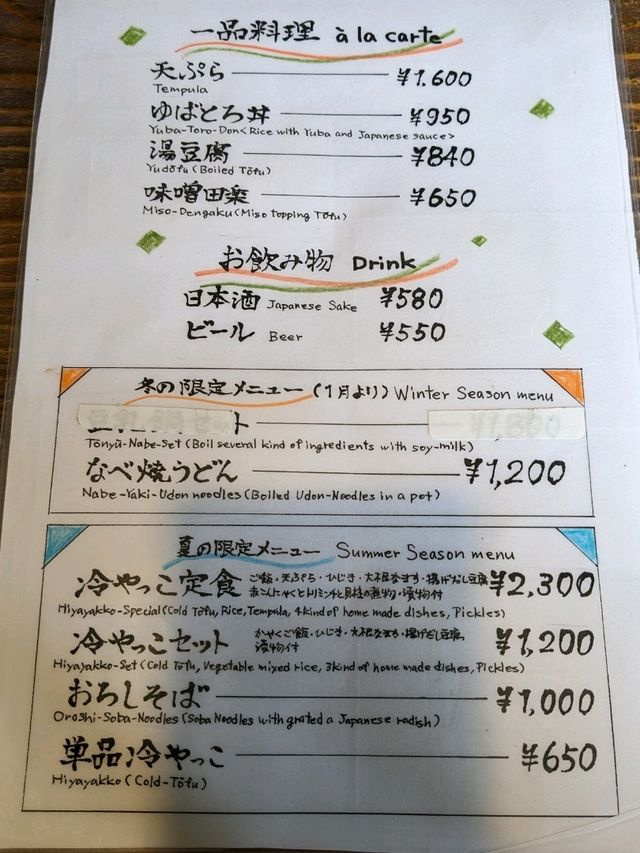 一品料理 à la carte
天ぷら ¥1,600
Tempula
ゆばとろ丼 ¥950
Yuba-Toro-Don<Rice with Yuba and Japanese sauce>
湯豆腐 ¥840
Yudōfu (Boiled Tōfu)
味噌田楽 ¥650
Miso-Dengaku (Miso topping Tōfu)
お飲み物 Drink
日本酒 Japanese Sake ¥580
ビール Beer ¥550
冬の限定メニュー(1月より) Winter Season menu
Tōnyū-Nabe-Set (Boil several kind of ingredients with soy-milk)
なべ焼うどん ¥1,200
Nabe-Yaki-Udon noodles (Boiled Udon-Noodles in a pot)
夏の限定メニュー Summer Season menu
冷やっこ定食 ご飯・天ぷら・ひじき・大根なます・揚げだし豆腐 ¥2,300
漬物付
Hiyayakko-Special (Cold Tōfu, Rice, Tempula, 4kind of home made dishes, Pickles)
冷やっこセット かやくご飯・ひじき・大根なます・揚げだし豆腐, ¥1,200
漬物付
Hiyayakko-Set (Cold Tōfu, Vegetable mixed rice, 3kind of home made dishes, Pickles)
おろしそば ¥1,000
Oroshi-Soba-Noodles (Soba Noodles with grated a Japanese radish)
単品冷やっこ ¥650
Hiyayakko (Cold-Tōfu)